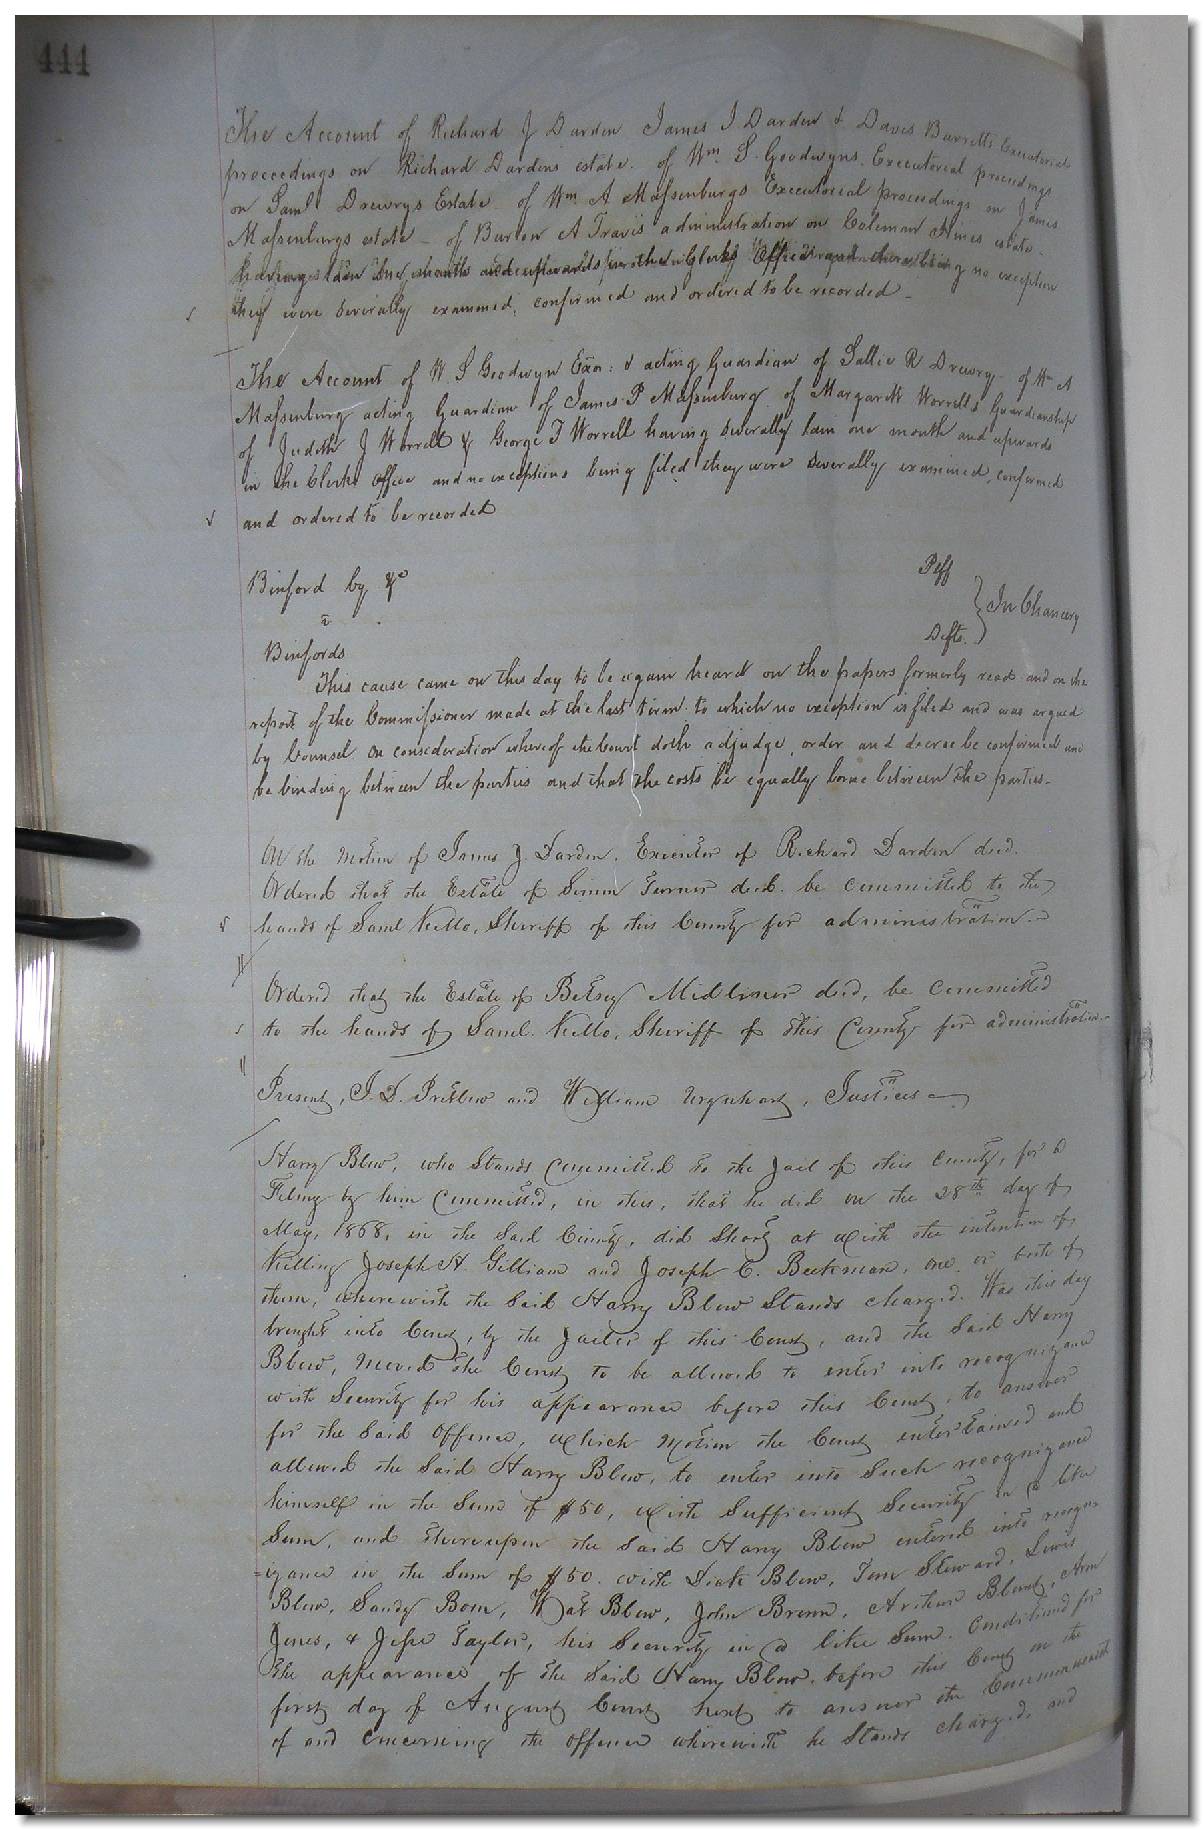 444
The Account of Richard J Darden James J Darden & Davis Barretts Executorial
proceedings on Richard Dardens estate. of Wm. S. Goodwyns. Executorial proceedings
on Saml Drewrys Estate of Wm A Massenburgs Executorial proceedings on James
Massenburgs estate - of Burton A Travis administration on Coleman Ames estate.
having lain one month and upwards in the Clerks Office and there being no exception
they were severally examined, confirmed and ordered to be recorded -
The Account of W S Goodwyn Exor: & acting Guardian of Sallie R Drewry - of Wm A
Massenburg acting Guardian of James P Massenburg of Margarett Worrells Guardianship
of Judith J Worrell & George T Worrell having severally lain one month and upwards
in the Clerks Office and no exceptions being filed they were severally examined, confirmed
and ordered to be recorded
Binford by &c Plff
v In Chancery
Binfords Defts.
This cause came on this day to be again heard on the papers formerly read and on the
report of the Commissioner made at the last term to which no exception is filed and was argued
by Counsel on consideration whereof the Court doth adjudge, order and decree be confirmed and
be binding between the parties and that the costs be equally borne between the parties-
On the motion of James J. Darden, Executor of Richard Darden decd.
Ordered that the Estate of Simon Turner decd. be committed to the
hands of Saml Kello, Sheriff of this County for administration.-
Ordered that the Estate of Betsey decd, be committed
to the hands of Saml. Kello, Sheriff of this County for administration.-
Present, J. D. Pretlow and William Urquhart, Justices
Harry Blow, who Stands Committed to the Jail of this County, for a
Felony by him Committed, in this, that he did on the 28th day of
May, 1868, in the Said County, did Shoot at with the intention of
Killing Joseph H. Gilliam and Joseph C. Beekman, one or both of
them, wherewith the Said Harry Blow Stands charged. Was this day
brought into Court, by the Jailer of this Court, and the Said Harry
Blow, moved the Court to be allowed to enter into recognizance
with Security for his appearance before this Court, to answer
for the Said Offence, which motion the Court entertained and
allowed the Said Harry Blow, to enter into Such recognizance
himself in the Sum of $50, with Sufficient Security in a like
Sum, and thereupon the Said Harry Blow entered into recogn
=izance in the Sum of $50. with Dick Blow, Tom Steward, Lewis
Blow, Sandy Bom, Wat Blow, John Brown, Arthur Blunt, Arm
Jones, & Jesse Taylor, his Security in a like Sum. Conditioned for
the appearance of the Said Harry Blow, before this Court on the
first day of August Court next to answer the Commonwealth
of and Concerning the offence wherewith he Stands charged, and